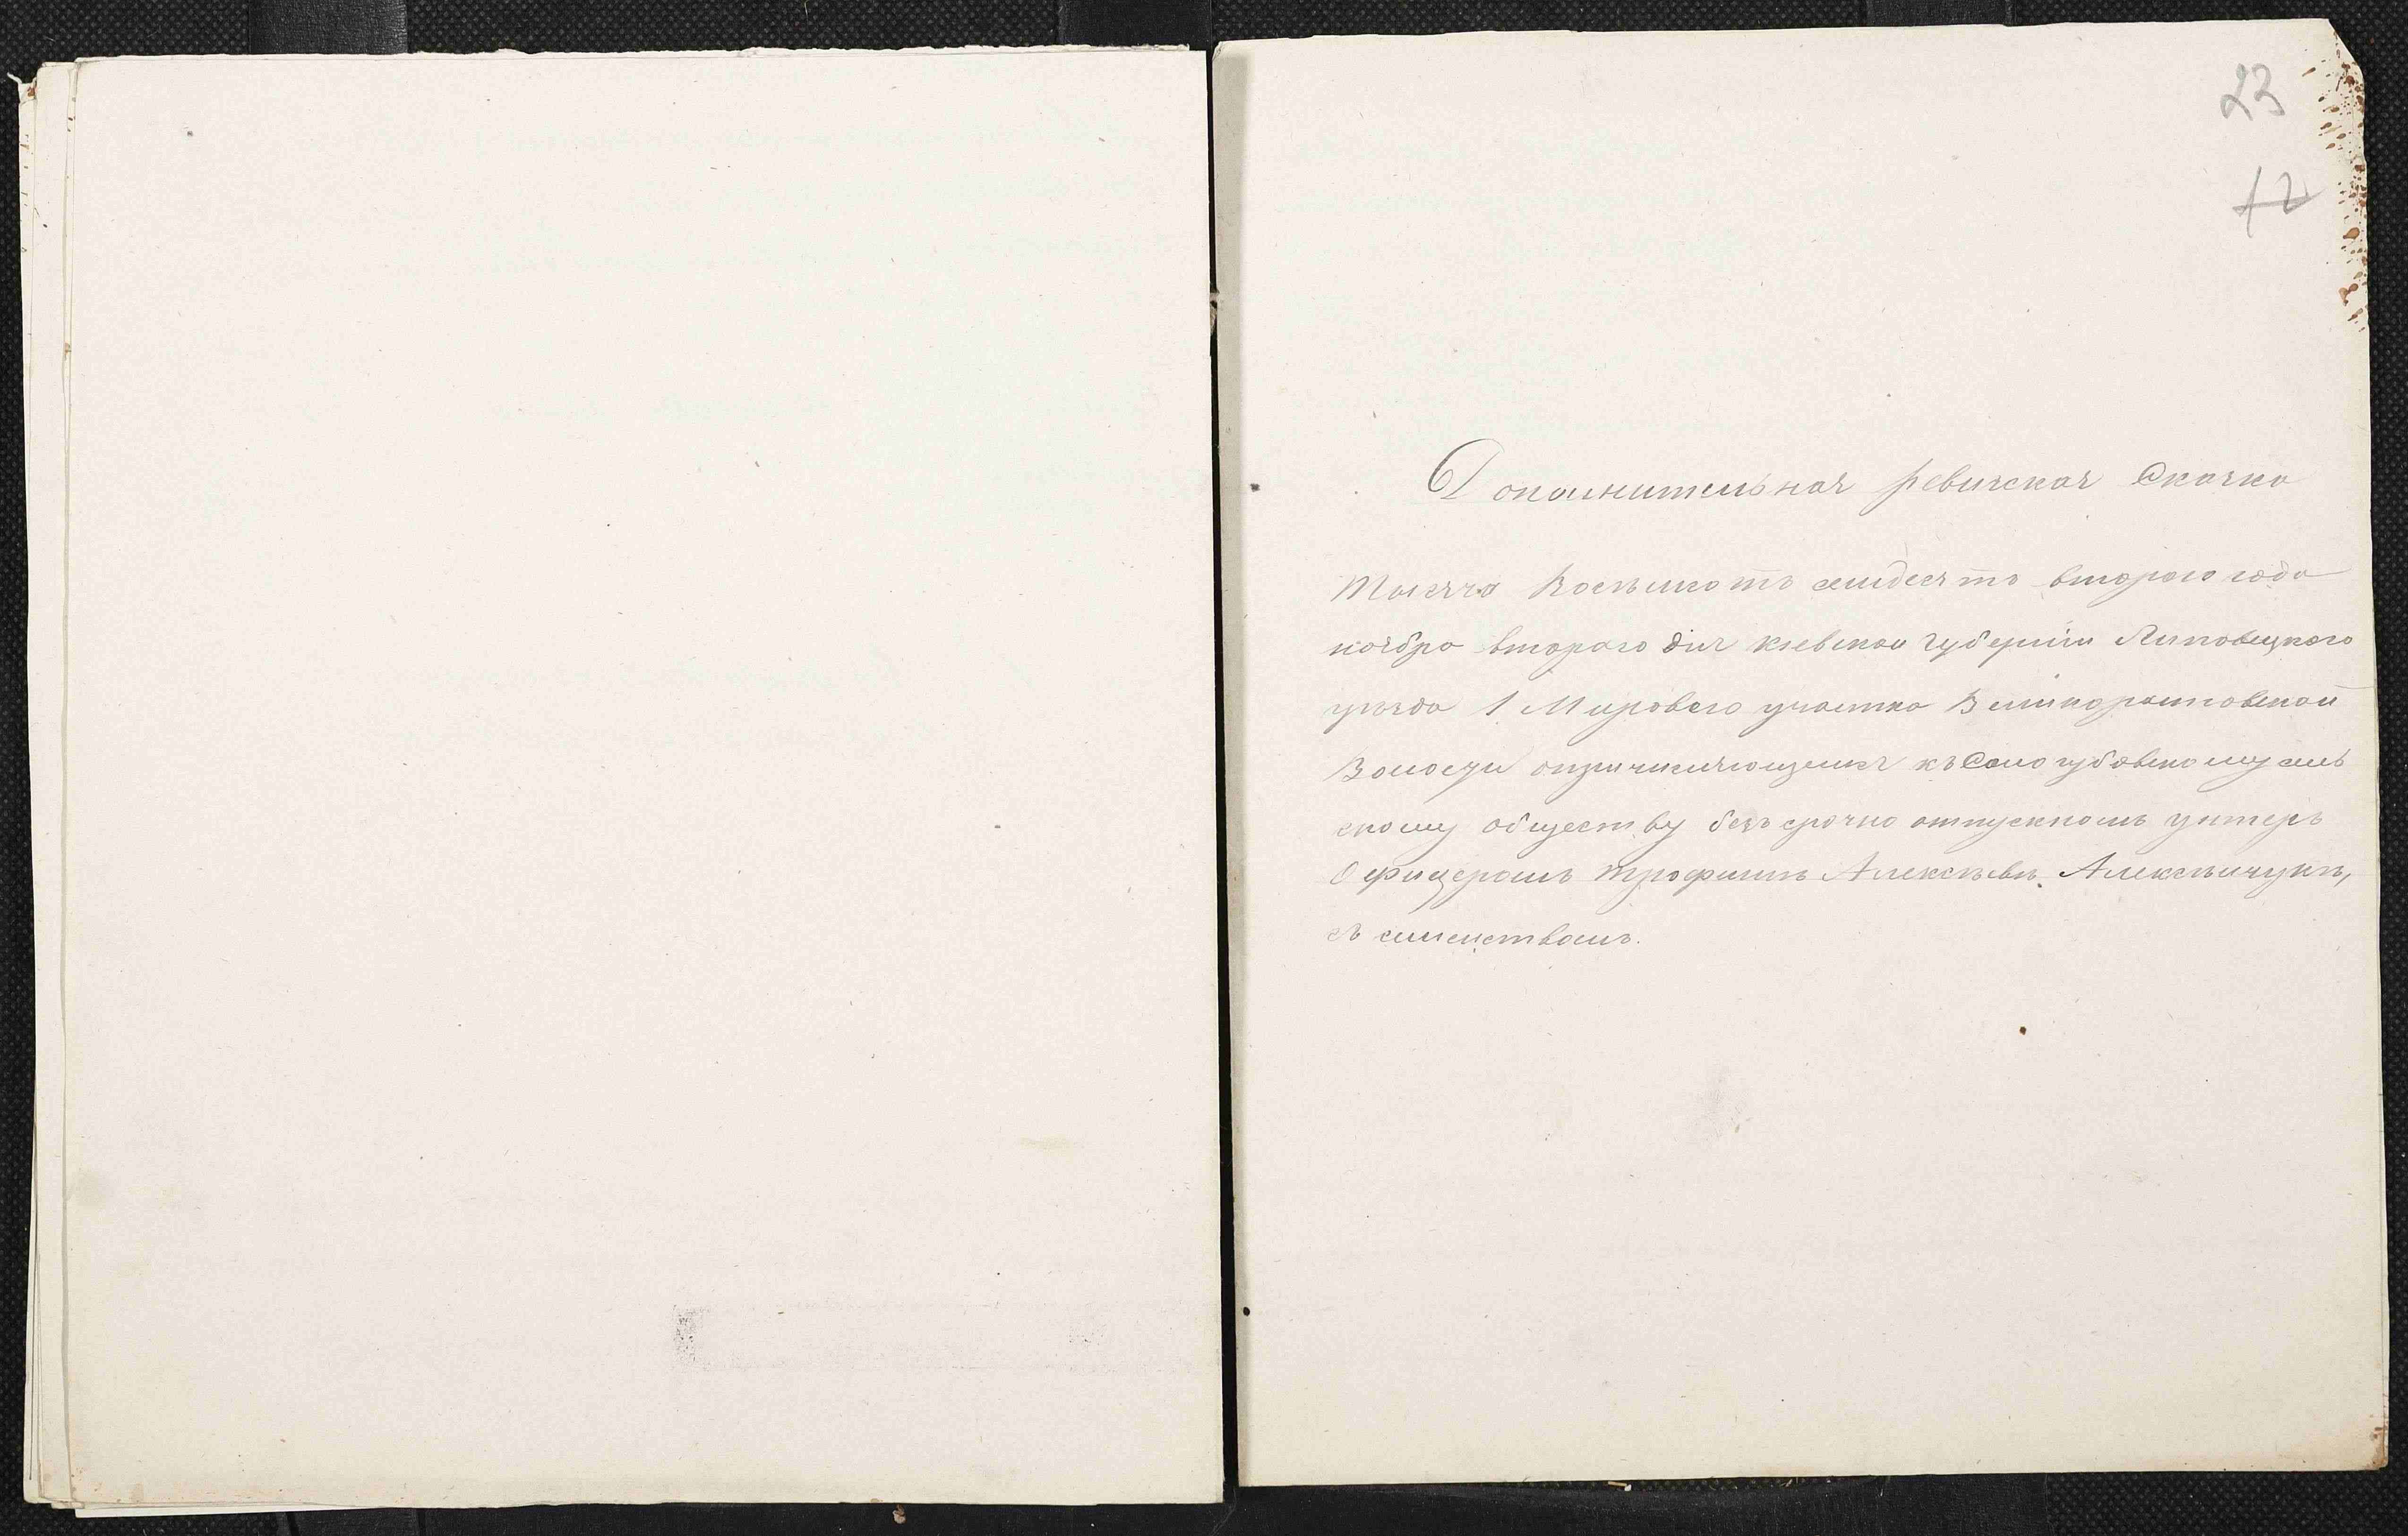 23
12
Дополнительная ревизская Сказка
Тысяча Восемьсотъ семдесятъ второго года
ноября второго дня кіевской губерніи Липовецкого
уѣзда 1 Мирового участка Великоростовской
Волости опричисляющемся къ Сологубовскому сель
скому обществу безъ срочно отпускномъ унтеръ
Офицеромъ Трофимъ Алексѣевъ Алексѣичукъ,
съ семействомъ.